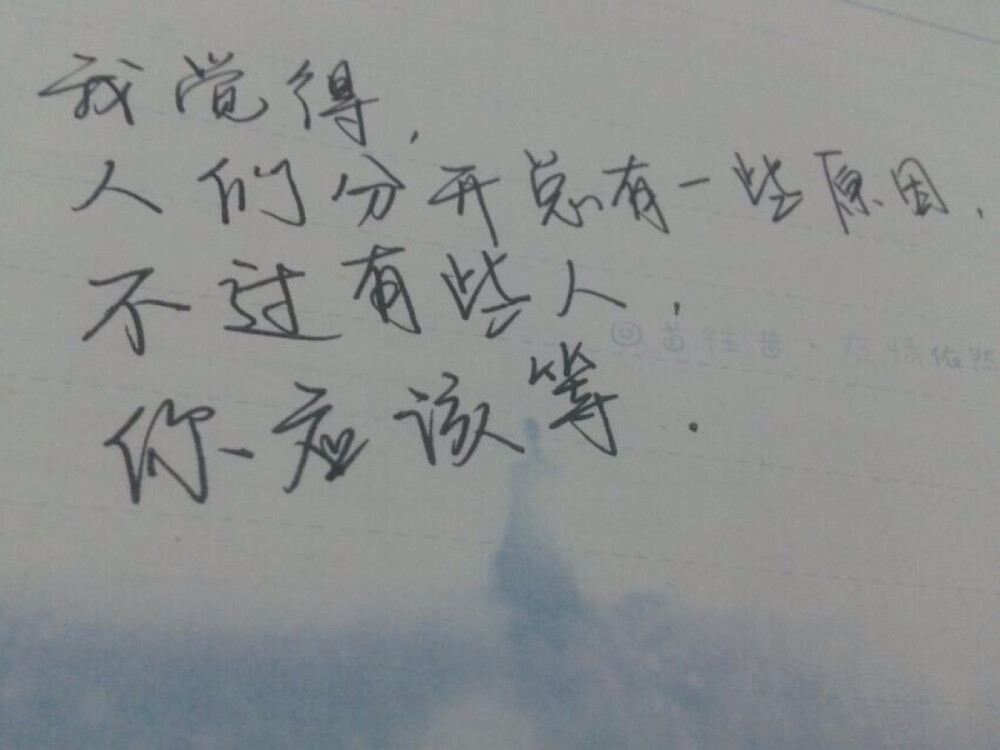 我觉得,
人们分开总有一些原因,
不过有些人,
你应该等.
往昔·友情依然